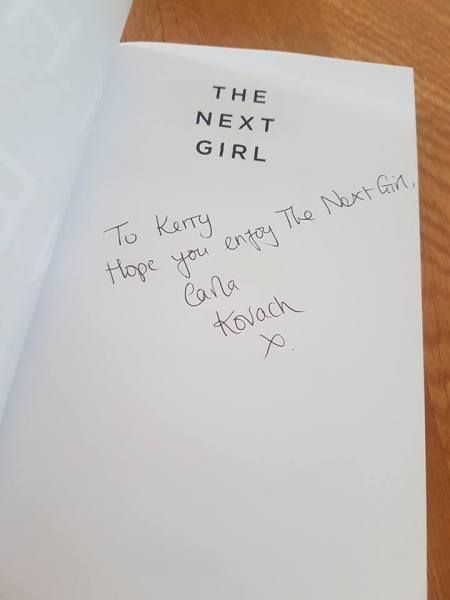 THE
NEXT
GIRL
To Kerry
Hope you enjoy The Next Girl,
Carla
Kovach
x.